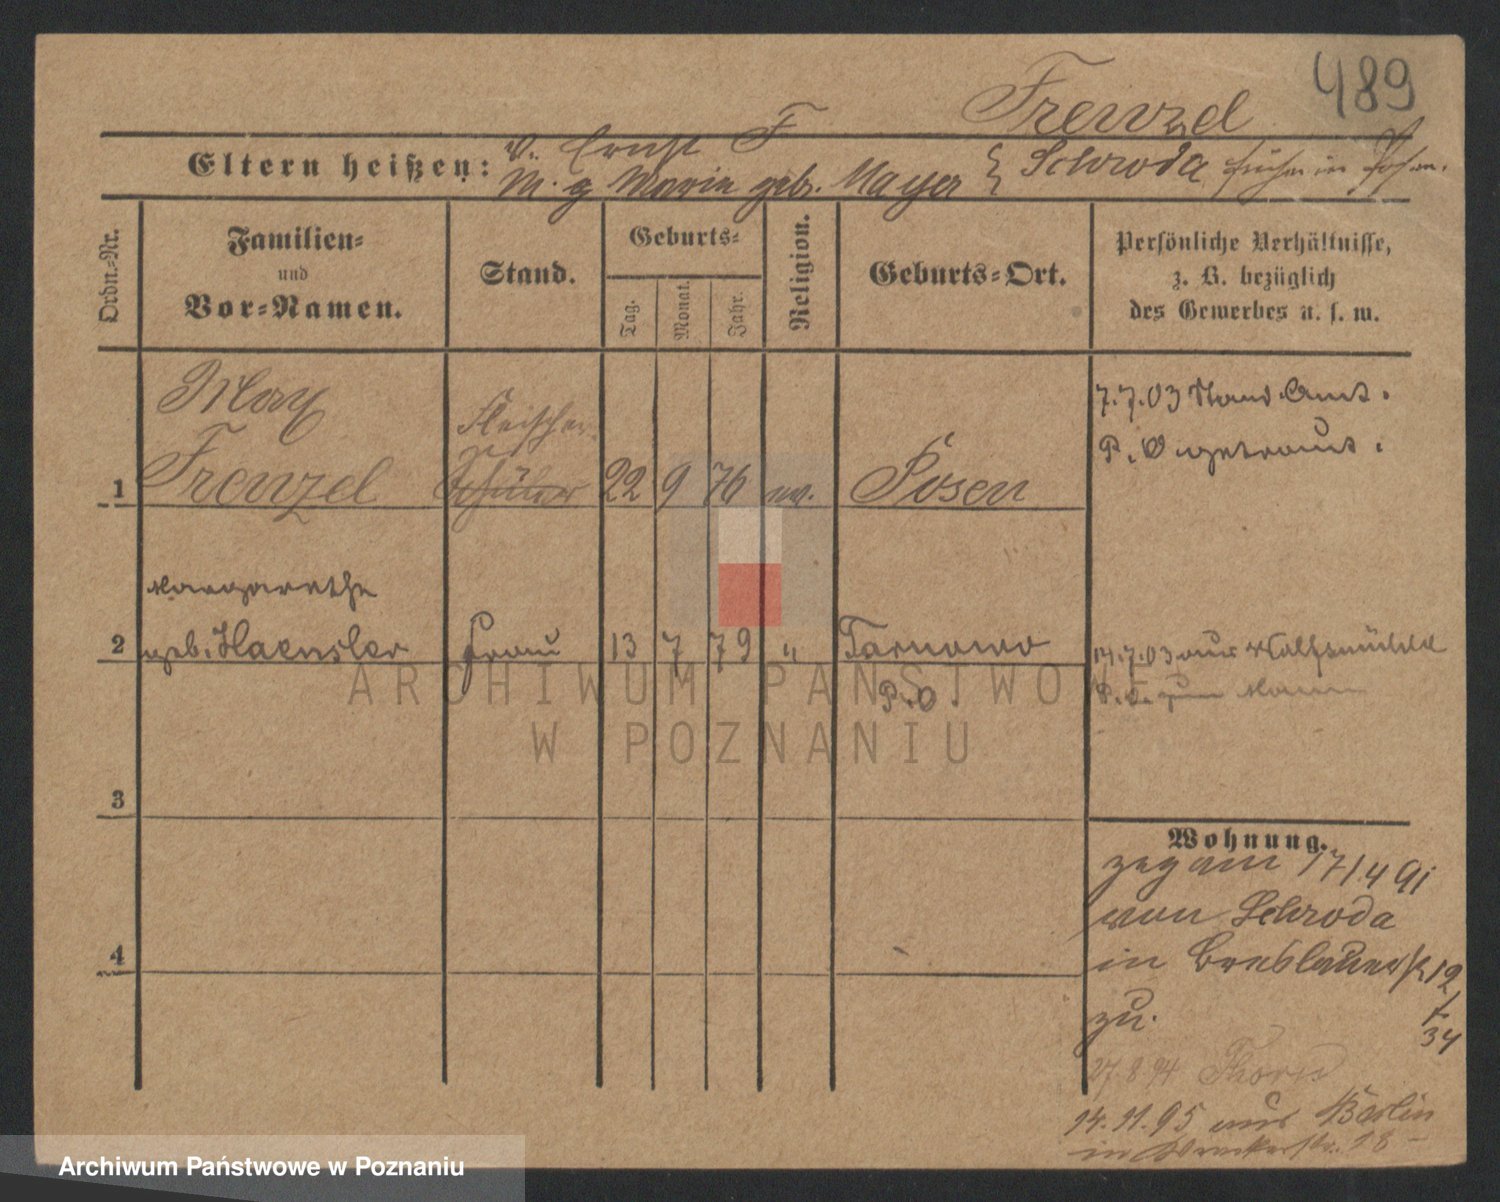 489
Frenzel
Eltern heißen:
V. Ernst F
M. g Marie geb. Mayer } Schroda früher in Posen.
Ordn.-Nr.
Familien- und Vor-Namen.
Stand.
Geburts-
Tag.
Monat.
Jahr.
Religion.
Geburts-Ort.
Persönliche Verhältnisse,
z. B. bezüglich
des Gewerbes u. s. w.
Max
Fleischer
1 Frenzel Schüler 22 9 76 ev. Posen
7.7.03 Stand. Amt.
P. O getraut.
Margarethe
2 geb. Haensler Frau 13 7 79 " Tarnowo
P. O.
14.7.03 aus Wolfsmühle
P. O. zum Mann
3
4
Wohnung.
zog am 17/4 91
von Schroda
in Breslauerstr 12
zu.
34
27.8.94 Thorn
14.11.95 aus Berlin
18
ARCHIWUM PAŃSTWOWE
W POZNANIU
Archiwum Państwowe w Poznaniu